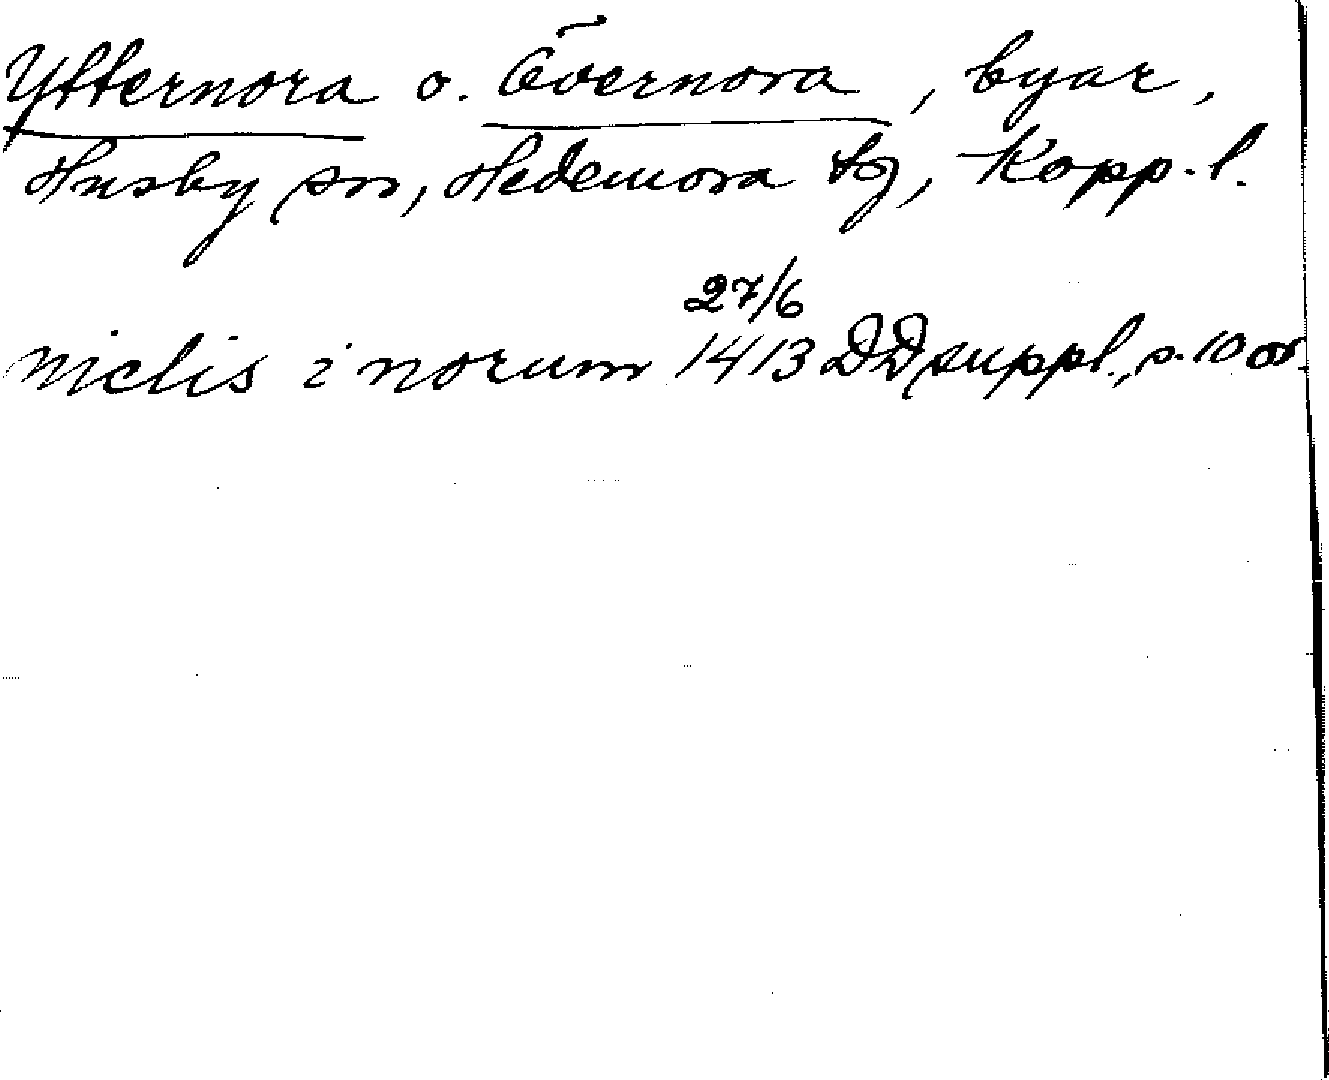 Ytternora o. Övernora, byar,
Husby sn, Hedemora tg, Kopp. l.
27/6
niclis i norum 1413 DD suppl., s. 10 or